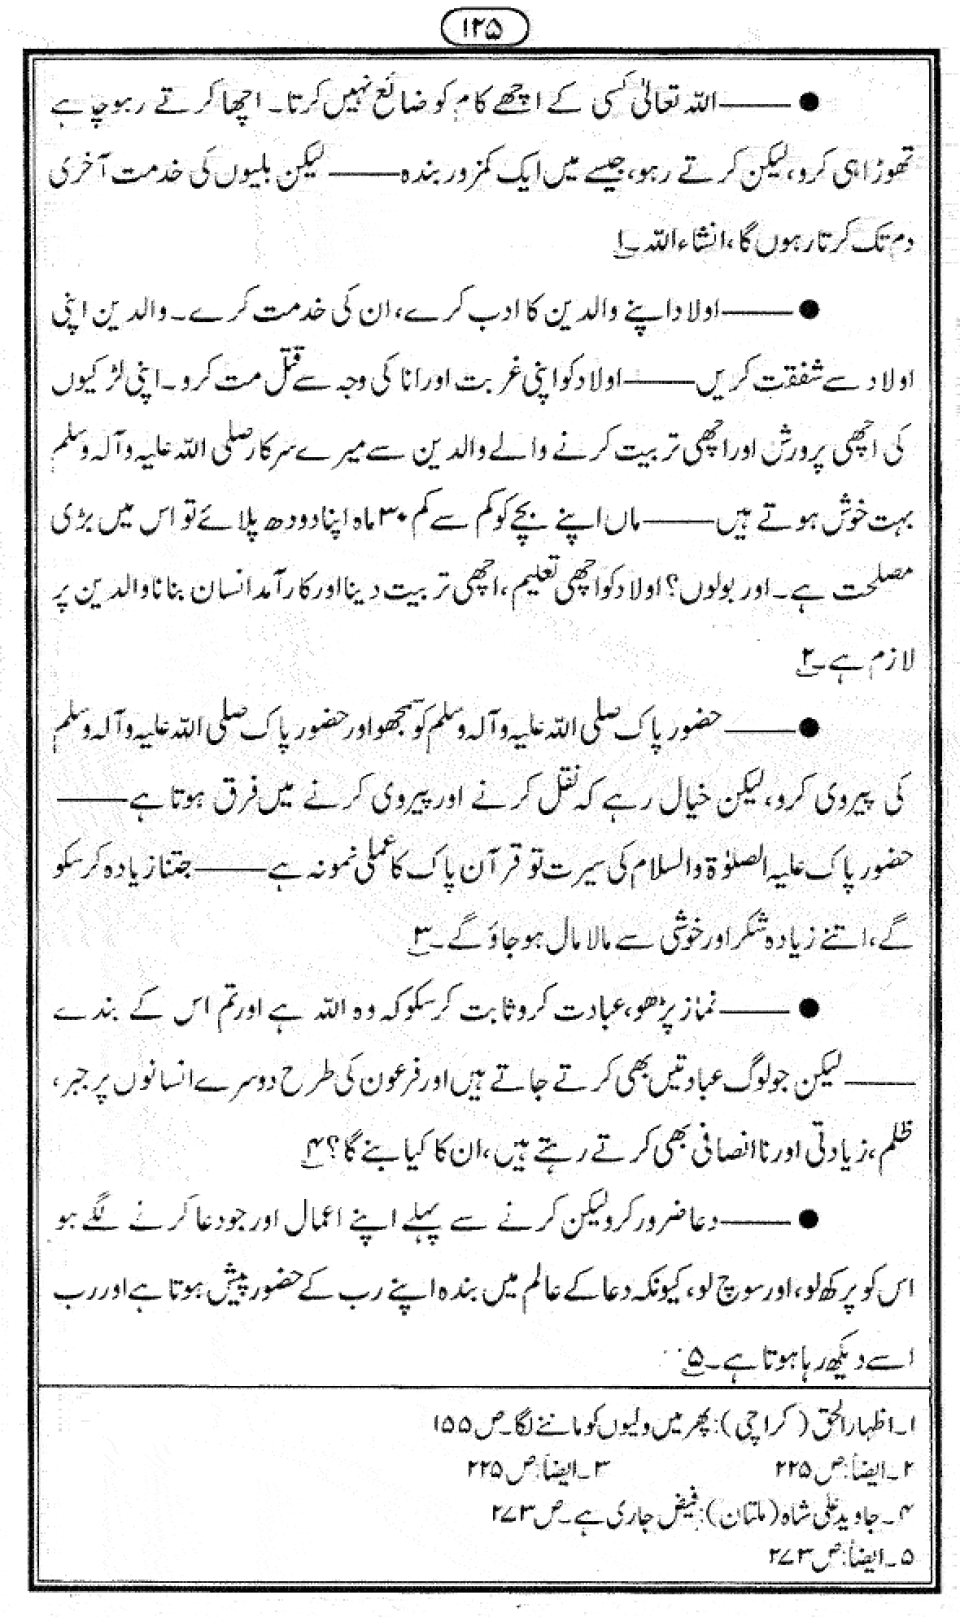 ۱۲۵
●——— اللہ تعالیٰ کسی کے اچھے کام کو ضائع نہیں کرتا۔ اچھا کرتے رہو چاہے
تھوڑا ہی کرو، لیکن کرتے رہو، جیسے میں ایک کمزور بندہ——— لیکن بلیوں کی خدمت آخری
دم تک کرتا رہوں گا، انشاء اللہ۔۱
●——— اولاد اپنے والدین کا ادب کرے، ان کی خدمت کرے۔ والدین اپنی
اولاد سے شفقت کریں——— اولاد کو اپنی غربت اور انا کی وجہ سے قتل مت کرو۔ اپنی لڑکیوں
کی اچھی پرورش اور اچھی تربیت کرنے والے والدین سے میرے سرکار صلی اللہ علیہ وآلہ وسلم
بہت خوش ہوتے ہیں——— ماں اپنے بچے کو کم سے کم ۳۰ ماہ اپنا دودھ پلائے تو اس میں بڑی
مصلحت ہے۔ اور بولوں؟ اولاد کو اچھی تعلیم، اچھی تربیت دینا اور کارآمد انسان بنانا والدین پر
لازم ہے۔۲
●——— حضور پاک صلی اللہ علیہ وآلہ وسلم کو سمجھو اور حضور پاک صلی اللہ علیہ وآلہ وسلم
کی پیروی کرو، لیکن خیال رہے کہ نقل کرنے اور پیروی کرنے میں فرق ہوتا ہے———
حضور پاک علیہ الصلوٰۃ والسلام کی سیرت تو قرآن پاک کا عملی نمونہ ہے——— جتنا زیادہ کر سکو
گے، اتنے زیادہ شکر اور خوشی سے مالا مال ہو جاؤ گے۔۳
●——— نماز پڑھو، عبادت کرو ثابت کر سکو کہ وہ اللہ ہے اور تم اس کے بندے
——— لیکن جو لوگ عبادتیں بھی کرتے جاتے ہیں اور فرعون کی طرح دوسرے انسانوں پر جبر،
ظلم، زیادتی اور ناانصافی بھی کرتے رہتے ہیں، ان کا کیا بنے گا؟۴
●——— دعا ضرور کرو لیکن کرنے سے پہلے اپنے اعمال اور جو دعا کرنے لگے ہو
اس کو پرکھ لو، اور سوچ لو، کیونکہ دعا کے عالم میں بندہ اپنے رب کے حضور پیش ہوتا ہے اور رب
اسے دیکھ رہا ہوتا ہے۔۵
۱۔ اظہار الحق (کراچی): پھر میں ولیوں کو ماننے لگا۔ ص ۱۵۵
۲۔ ایضاً: ص ۲۲۵ ۳۔ ایضاً: ص ۲۲۵
۴۔ جاوید علی شاہ (ملتان): فیض جاری ہے۔ ص ۲۷۳
۵۔ ایضاً: ص ۲۷۳